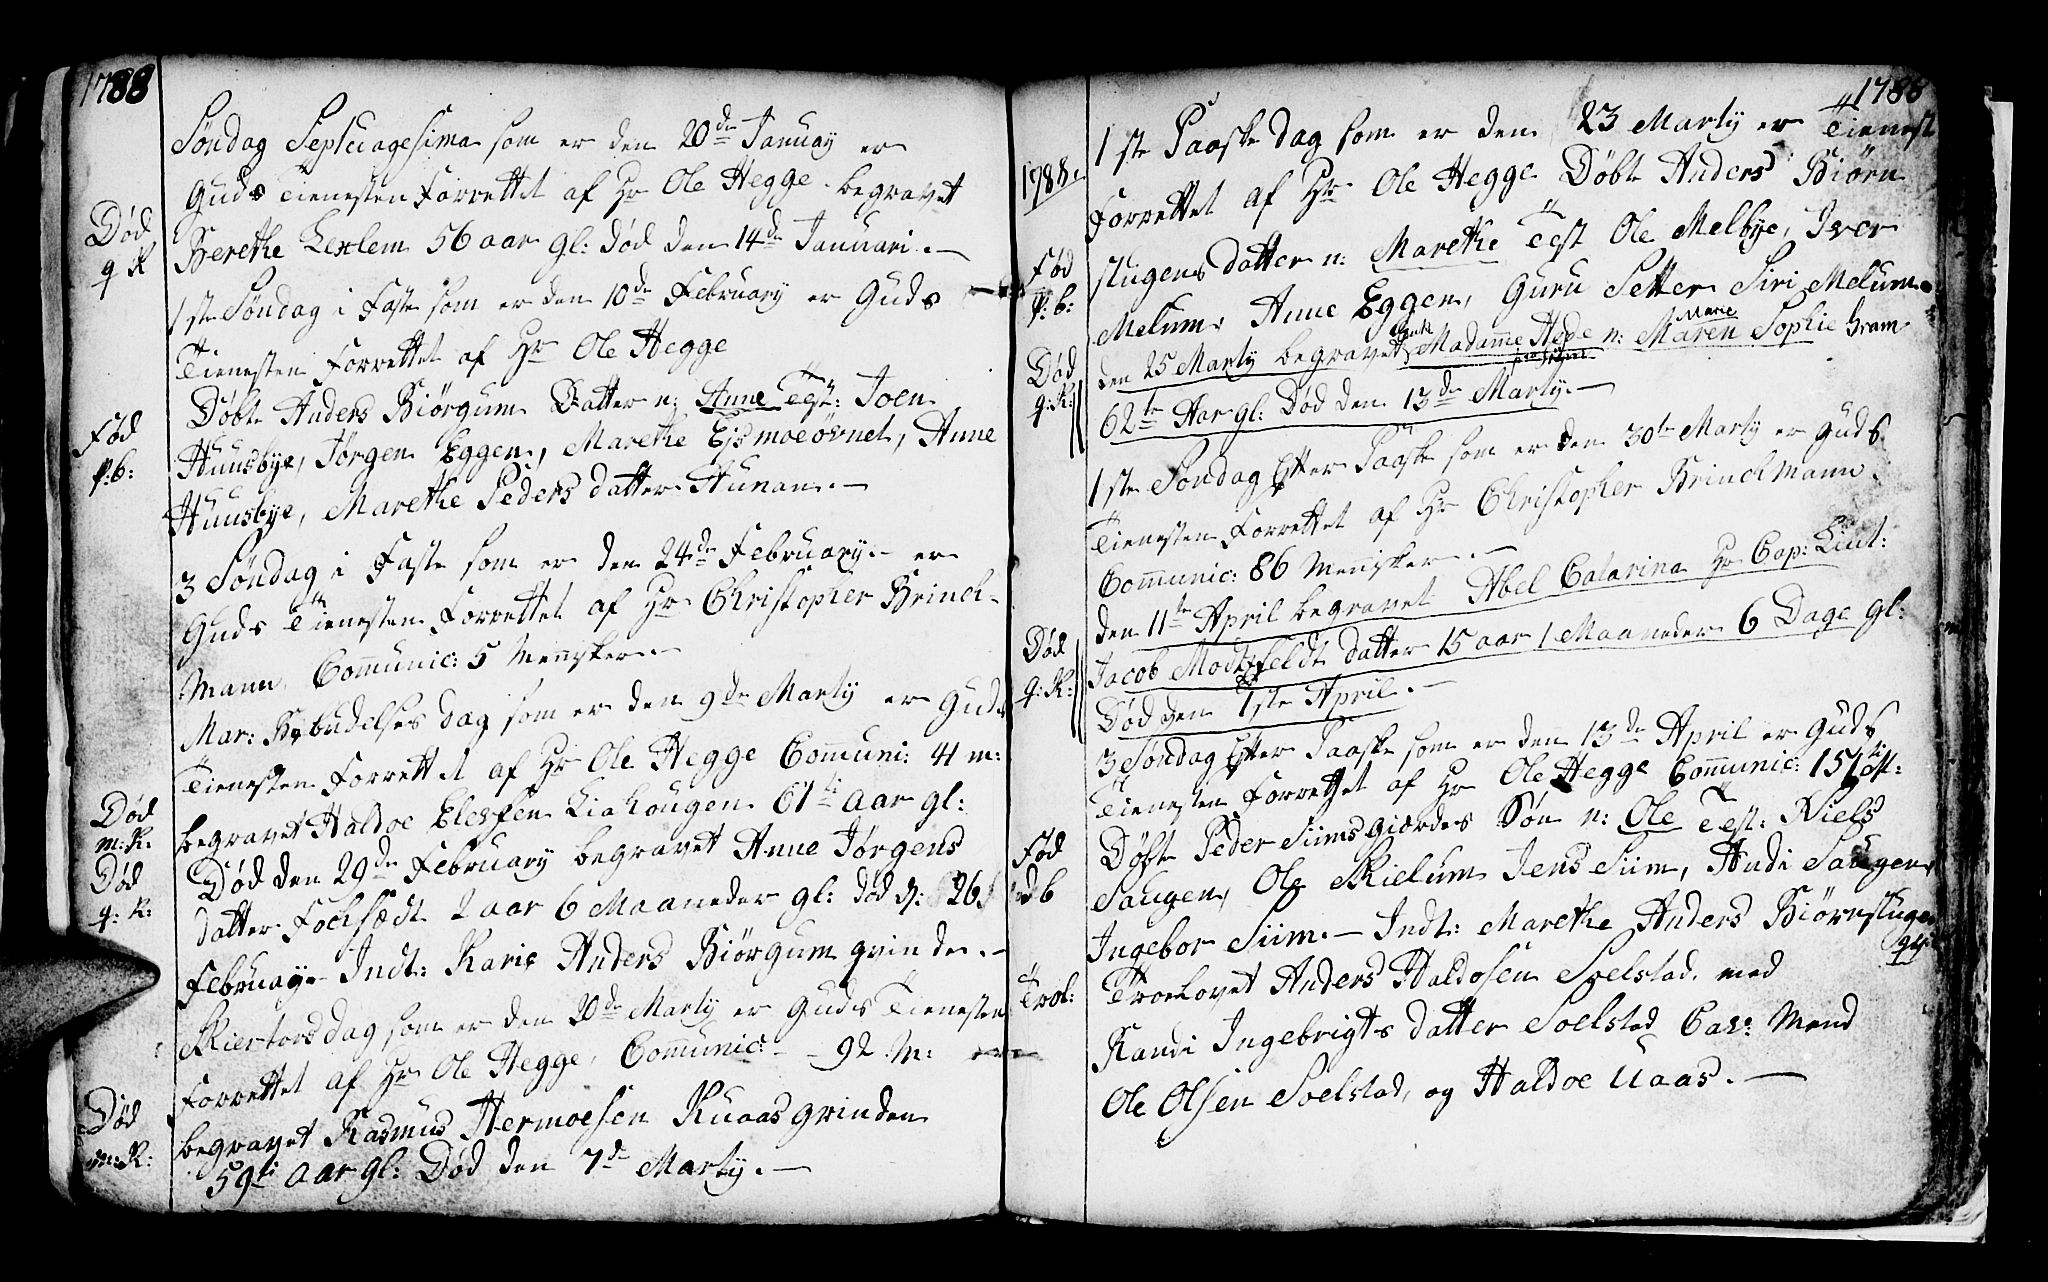 1788
Søndag Septuagesima som er den 20de Januay er
Guds Tienesten Forrettet af Hr Ole Hegge begravet
Død
q K
Berethe Lexlem 56 aar gl: Død den 14de Januari.—
1ste Søndag i Faste som er den 10de February er Guds
Tienesten Forrettet af Hr Ole Hegge
Døbt Anders Biørgum Datter n: Anne Test: Joen
Fød
p:b:
Huusbye, Jørgen Eggen, Marethe Ejsmoeøvnet, Anne
Huusbye, Marethe Peders datter Aunan.—
3 Søndag i Faste som er den 24de February.— er
Guds Tienesten Forrettet af Hr Christopher Brinch-
Mann Communic: 5 Menisker.—
Mar: Bebudelses dag som er den 9de Marty er Guds
Tienesten Forrettet af Hr Ole Hegge Communi: 41 m:
Død
m:K:
begravet Haldoe Elefsen Liahougen 61ti aar gl:
Død
q:K:
Død den 29de February begravet Anne Jørgens
datter Fochsædt 2 aar 6 Maaneder gl: død d: 26
February Indt: Karie Anders Biørgum qvinde.—
Skiertorsdag som er den 20de Marty er Guds Tienesten
Forrettet af Hr Ole Hegge, Communic: — 92 M:
Død
m:K:
begravet Rasmus Hermoesen Ruaasgrinden
59ti aar gl: Død den 7de Marty.—
1788
1788.
1ste Paaske dag som er den 23 Marty er Tienest
Forrettet af Hr Ole Hegge Døbt Anders Biørn
Fød
p:b:
stugens datter n: Marethe Test Ole Melbye, Iver
Melum, Anne Eggen, Guru Setter Siri Melum
Død
q:K:
den 25 Marty begravet Madamme Hede n: Maren Marie Sophie bram
62te Aar gl: Død den 13de Marty.—
1ste Søndag Efter Paaske som er den 30te Marty er Guds
Tienesten Forrettet af Hr Christopher Brinchmann
Communic: 86 Menisker.—
den 11te April begravet Abel Catarina Hr Cap: Lieut:
Død
q:K:
Jacob Modtzfeldt datter 15 aar 1 Maaneder 6 Dage gl:
Død den 1ste April.—
3 Søndag Efter Paaske som er den 13de April er Guds
Tienesten Forrettet af Hr Ole Hegge Communic: 151
Fød
d b
Døbt Peder Siimsgiærdes Søn n: Ole Test: Niels
Saugen, Ole Skielum Jens Siim, Andi Saugen,
Ingebor Siim.— Indt: Marethe Anders Biørnstugen
qv:
Trol:
Troelovet Anders Haldosen Soelstad, med
Randi Ingebrigts datter Soelstad Cav: Mend
Ole Olsen Soelstad, og Haldoe Uaas.—